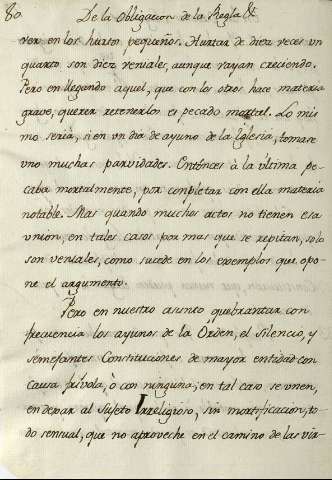 80. De la Obligacion de la Regla &
ver en los hurtos pequeños. Hurtar de diez veces un
quarto son diez veniales, aunque vayan creciendo.
Pero en llegando aquel, que con los otros hace materia
grave, querer retenerlos es pecado mortal. Lo mis
mo seria, si en un dia de ayuno de la Iglesia, tomase
uno muchas parvidades. Entônces à la ùltima pe-
caba mortalmente, por completar con ella materia
notable. Mas quando muchos actos no tienen esa
union, en tales casos por mas que se repitan, solo
son veniales, como sucede en los exemplos que opo-
ne el argumento.
Pero en nuestro asunto quebrantar con
frecuencia los ayunos de la Orden, el silencio, y
semejantes Constituciones de mayor entidad con
causa frívola, ò con ninguna; en tal caso se unen,
en dexar al Sujeto Irreligioso, sin mortificacion, to-
do sensual, que no aproveche en el camino de las vir-